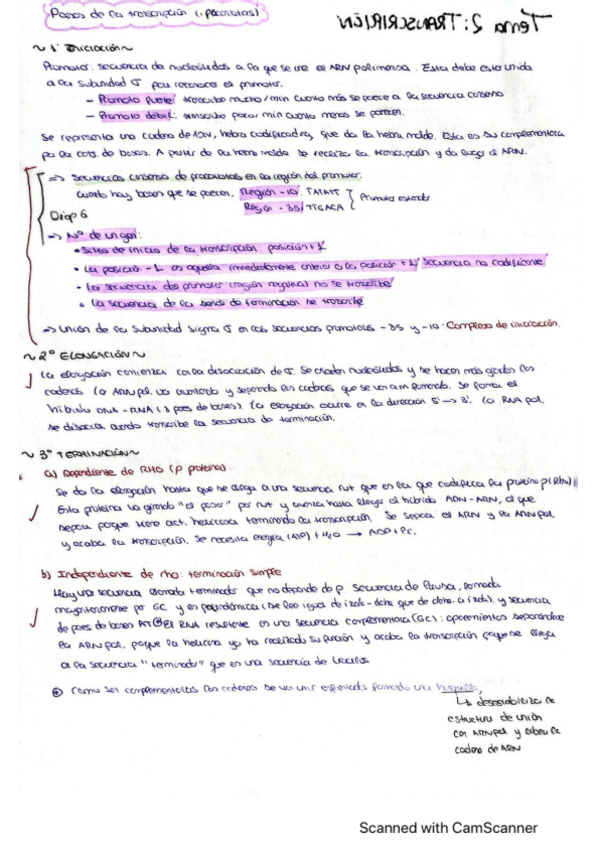 Tema 2: TRANSCRIPCIÓN
Pasos de la transcripción (procariotas)
~ 1º Iniciación ~
Promotor: secuencia de nucleótidos a la que se une el ARN polimerasa. Esta debe estar unida
a la subunidad σ para reconocer el promotor.
– Promotor fuerte: transcribe mucho/min cuanto más se parece a la secuencia consenso
– Promotor débil: transcribe poco/min cuanto menos se parecen.
Se representa una cadena de ADN, hebra codificadora, que da la hebra molde. Esta es su complementaria
por la de bases. A partir de la hebra molde se realiza la transcripción y da lugar al ARN.
=> Secuencias consenso de procariotas en la región del promotor.
cuando hay bases que se parecen. Región -10: TATAAT
Región -35: TTGACA } Promotor estándar
Diap 6
=> Nº de un gen:
• Sitio de inicio de la transcripción: posición +1
• La posición -1 es aquella inmediatamente anterior a la posición +1/ secuencia no codificante
• La secuencia del promotor (región reguladora) no se transcribe
• La secuencia de la señal de terminación se transcribe
=> Unión de la subunidad sigma σ en las secuencias promotoras -35 y -10: Complejo de iniciación.
~ 2º ELONGACIÓN ~
La elongación comienza con la disociación de σ. Se añaden nucleótidos y se hacen más grandes las
cadenas. La ARN pol. va avanzando y separando las cadenas que se van formando. Se forma el
híbrido DNA - RNA (8 pares de bases). La elongación ocurre en la dirección 5' → 3'. La RNA pol.
se disocia cuando transcribe la secuencia de terminación.
~ 3º TERMINACIÓN ~
a) Dependiente de RHO (ρ proteína)
Se da la elongación hasta que se llega a una secuencia rut que es la que codifica la proteína ρ (Rho)
Esta proteína va girando "al pasar" por rut y avanza hasta llegar al híbrido ADN - ARN, al que
separa porque tiene act. helicasa terminando la transcripción. Se separa el ARN y la ARN pol
y acaba la transcripción. Se necesita energía (ATP) + H₂O → ADP + Pi.
b) Independiente de rho: terminación simple
Hay una secuencia llamada terminador que no depende de ρ. Secuencia de Pausa, formada
mayoritariamente por GC y es palindrómica (se lee igual de izda - dcha que de dcha. a izda), y secuencia
de pares de bases AT⊕ El RNA resultante es una secuencia complementaria (GC): apareamientos separándose
la ARN pol, porque la helicasa ya ha realizado su función y acaba la transcripción porque se llega
a la secuencia "terminador" que es una secuencia de Uracilos
⊕ Como son complementarias las cadenas se van a unir formando una horquilla,
↳ desestabiliza la
estructura de unión
con ARN pol y libera la
cadena de ARN
Scanned with CamScanner